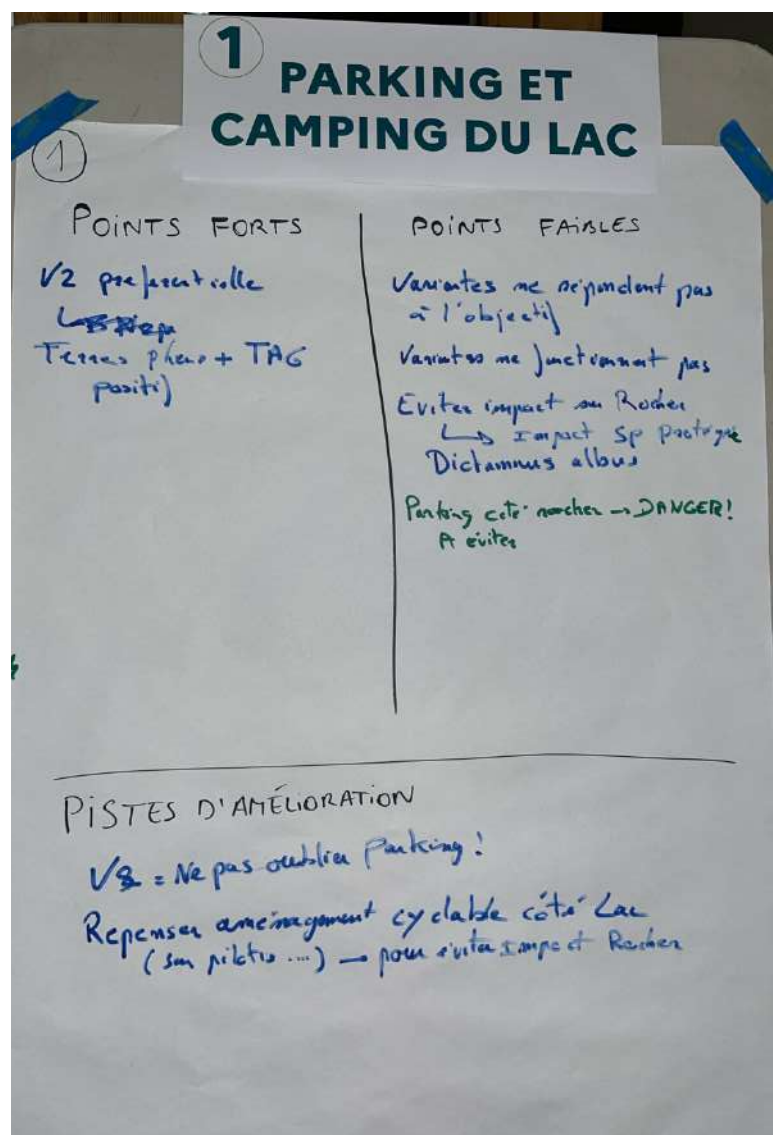 1
PARKING ET
CAMPING DU LAC
1
POINTS FORTS
V2 preferentielle
Terres plein + TAG
positif
POINTS FAIBLES
Variantes ne répondent pas
à l'objectif
Variantes ne fonctionnent pas
Eviter impact sur Rocher
↳ Impact Sp protégée
Dictamnus albus
Parking coté rocher → DANGER!
A éviter
PISTES D'AMÉLIORATION
= Ne pas oublier Parking !
Repenser aménagement cyclable côté Lac
(sur pilotis ...) → pour éviter Impact Rocher